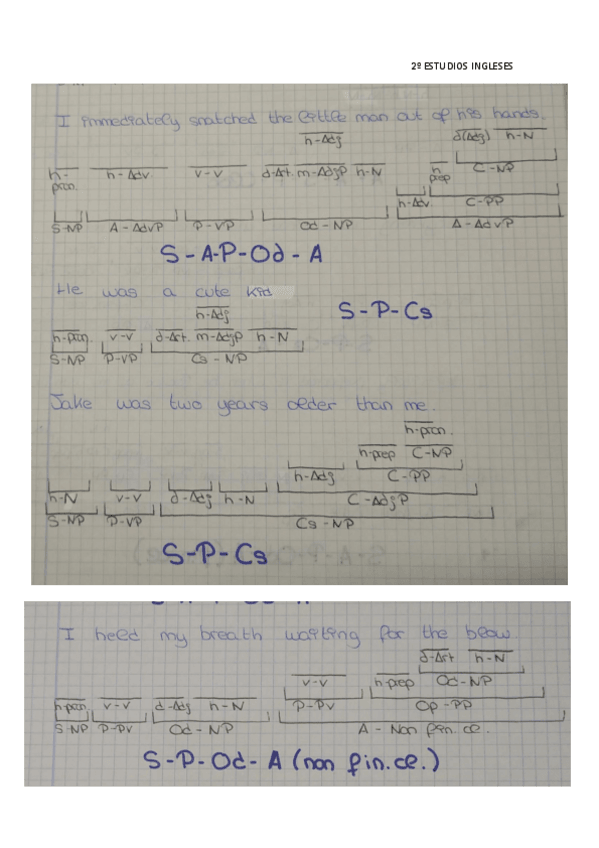 2º ESTUDIOS INGLESES
I immediately snatched the little man out of his hands.
h-Adj d(Adj) h-N
h-pron. h-Adv v-v d-Art. m-AdjP h-N h-prep C-NP
h-Adv. C-PP
S-NP A-AdvP P-VP Od-NP A-AdvP
S-A-P-Od-A
He was a cute kid
h-Adj
S-P-Cs
h-pron. v-v d-Art. m-AdjP h-N
S-NP P-VP Cs-NP
Jake was two years older than me.
h-pron.
h-prep C-NP
h-Adj C-PP
h-N v-v d-Adj h-N C-AdjP
S-NP P-VP Cs-NP
S-P-Cs
I held my breath waiting for the blow.
d-Art h-N
v-v h-prep Od-NP
h-pron. v-v d-Adj h-N P-PV Op-PP
S-NP P-PV Od-NP A-Non fin.ce.
S-P-Od-A (non fin.ce.)